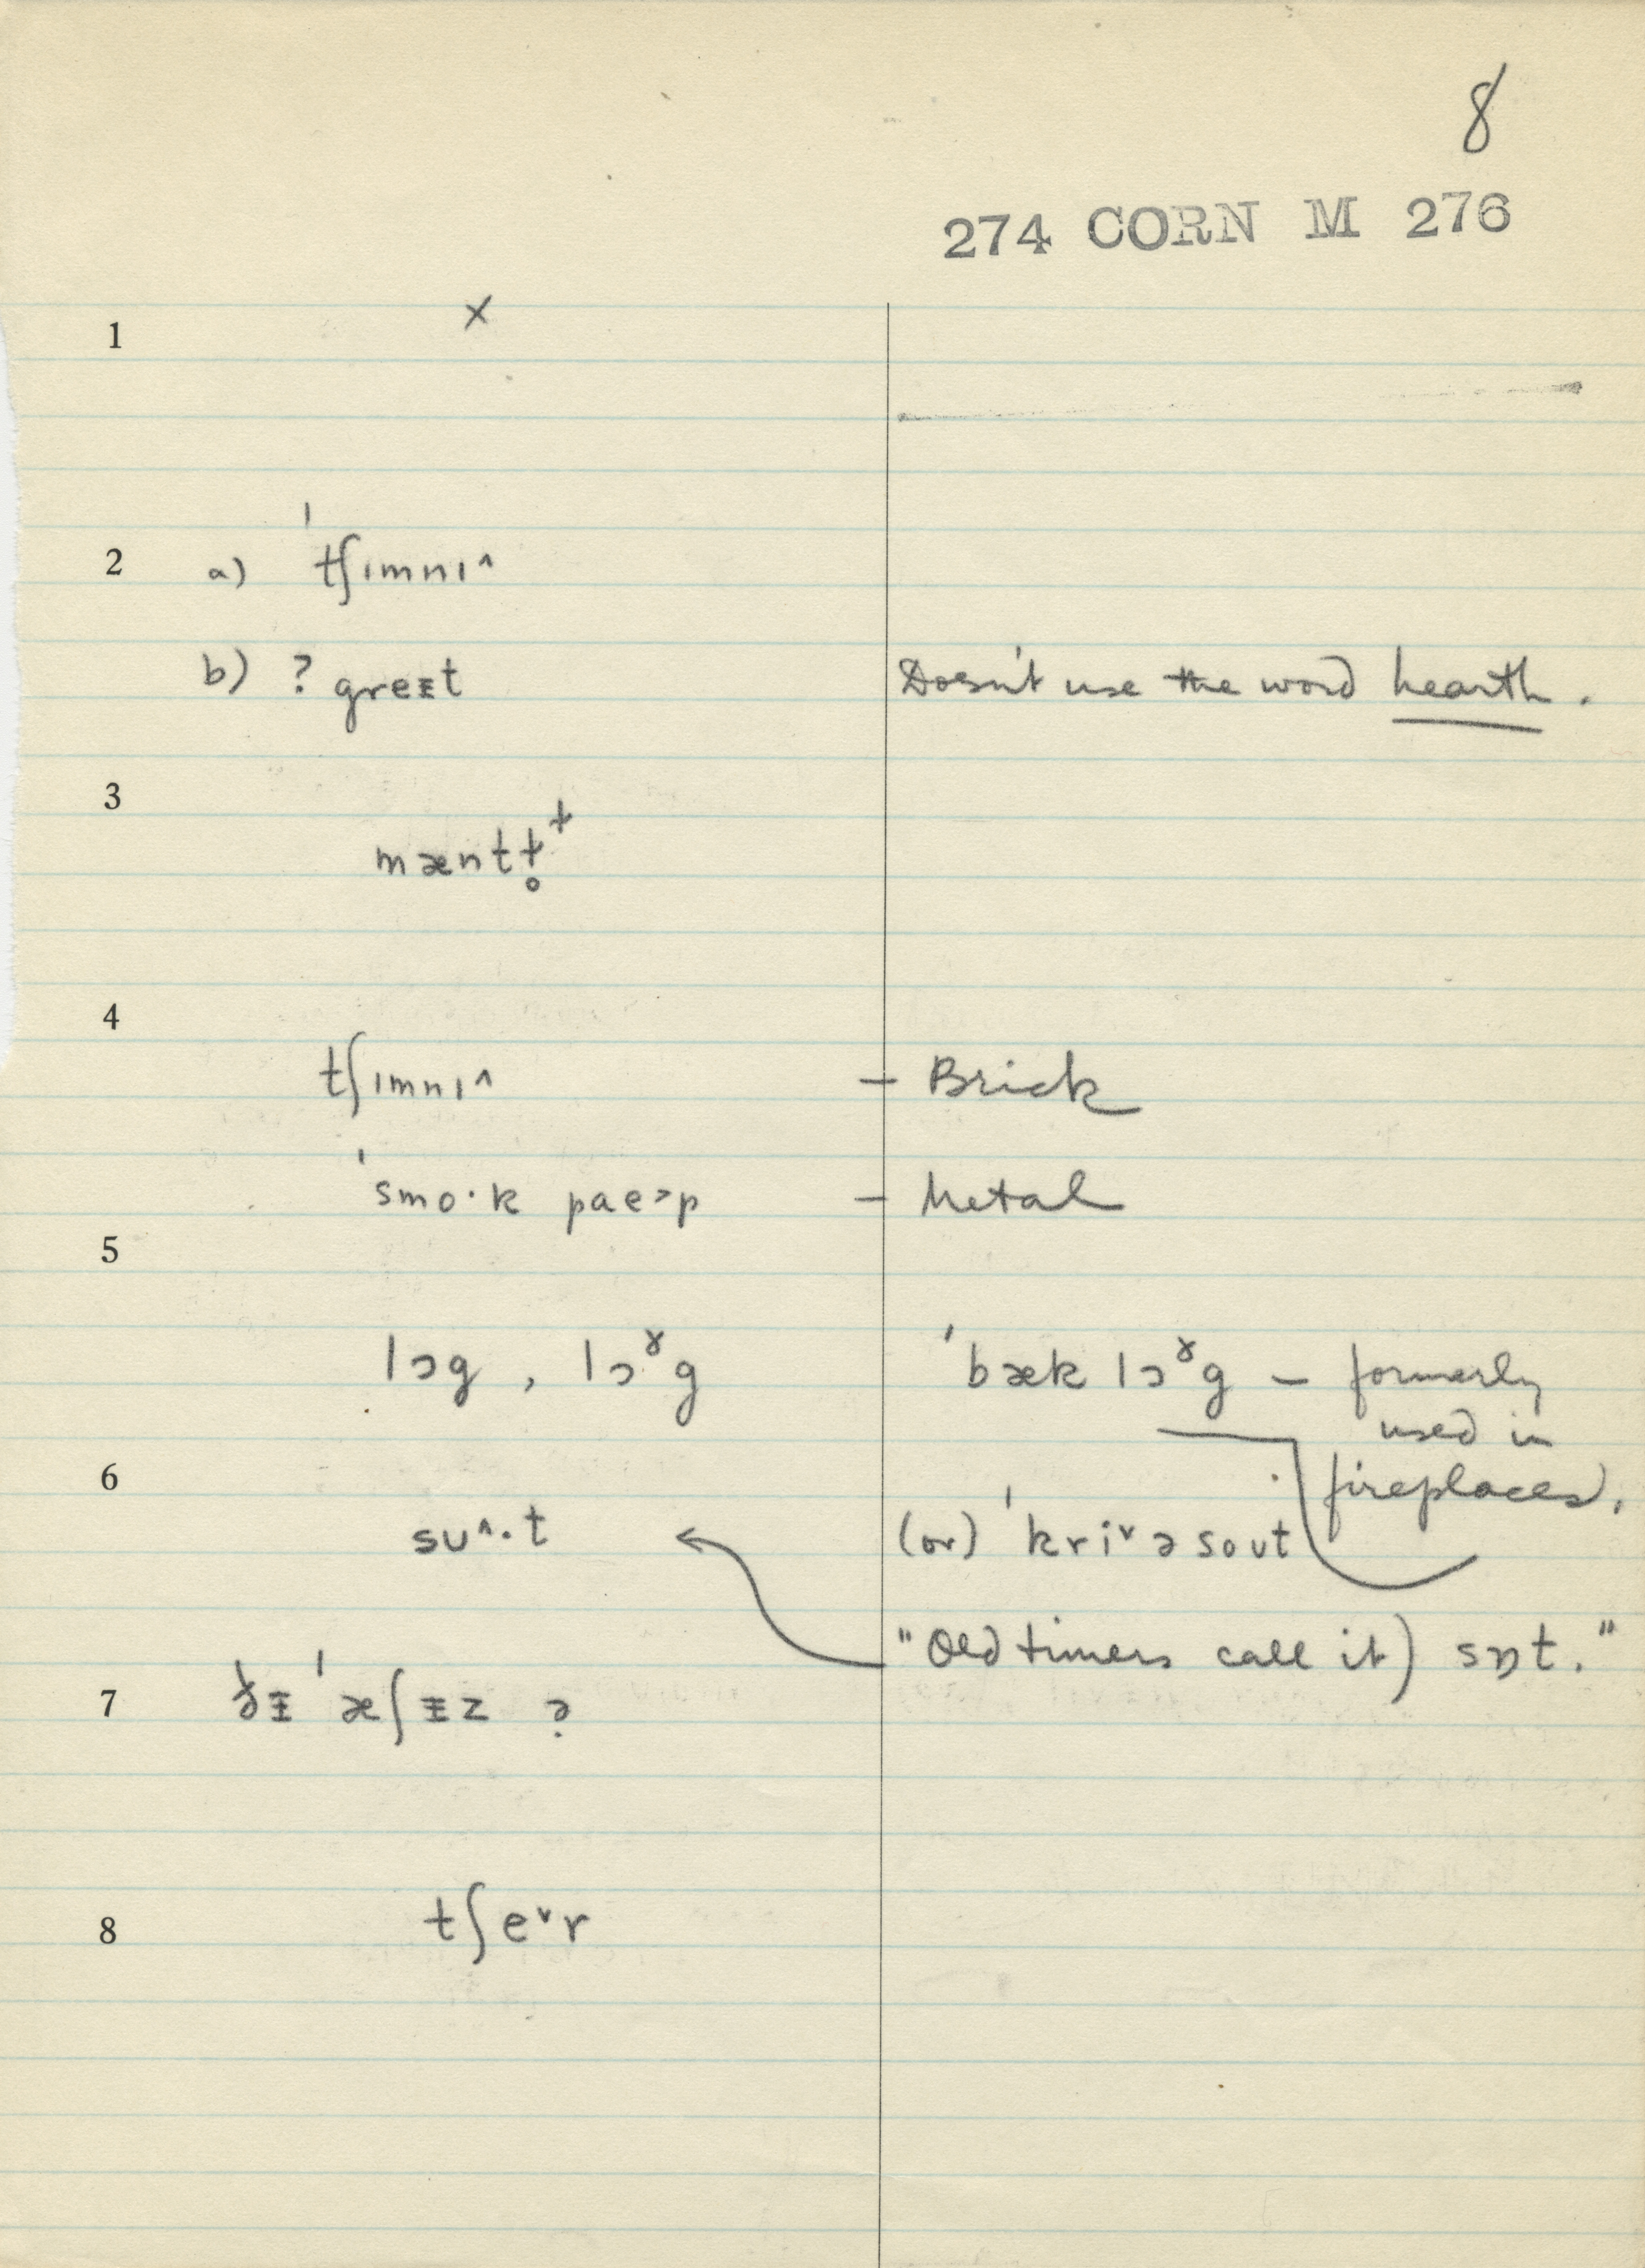 8
274 CORN M 276
1 x
2 a) ˈtʃımnı^
b) ? greᵻt Doesn't use the word hearth.
3 mæntɫ̥⁺
4
tʃımnı^ – Brick
ˈsmo·k pae˃p – Metal
5
lɔg , lɔˠg ˈbæk lɔˠg – formerly
used in
6 fireplaces.
sʊ^·t (or) ˈkriᵛəsoʊt
"Old timers call it) sɒt."
7 ðᵻ ˈæʃᵻz ?
8 tʃeᵛr